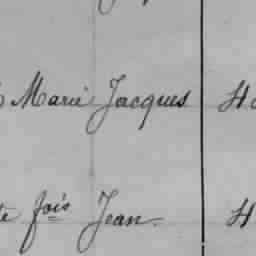 Marie Jacques H
te fois Jean H